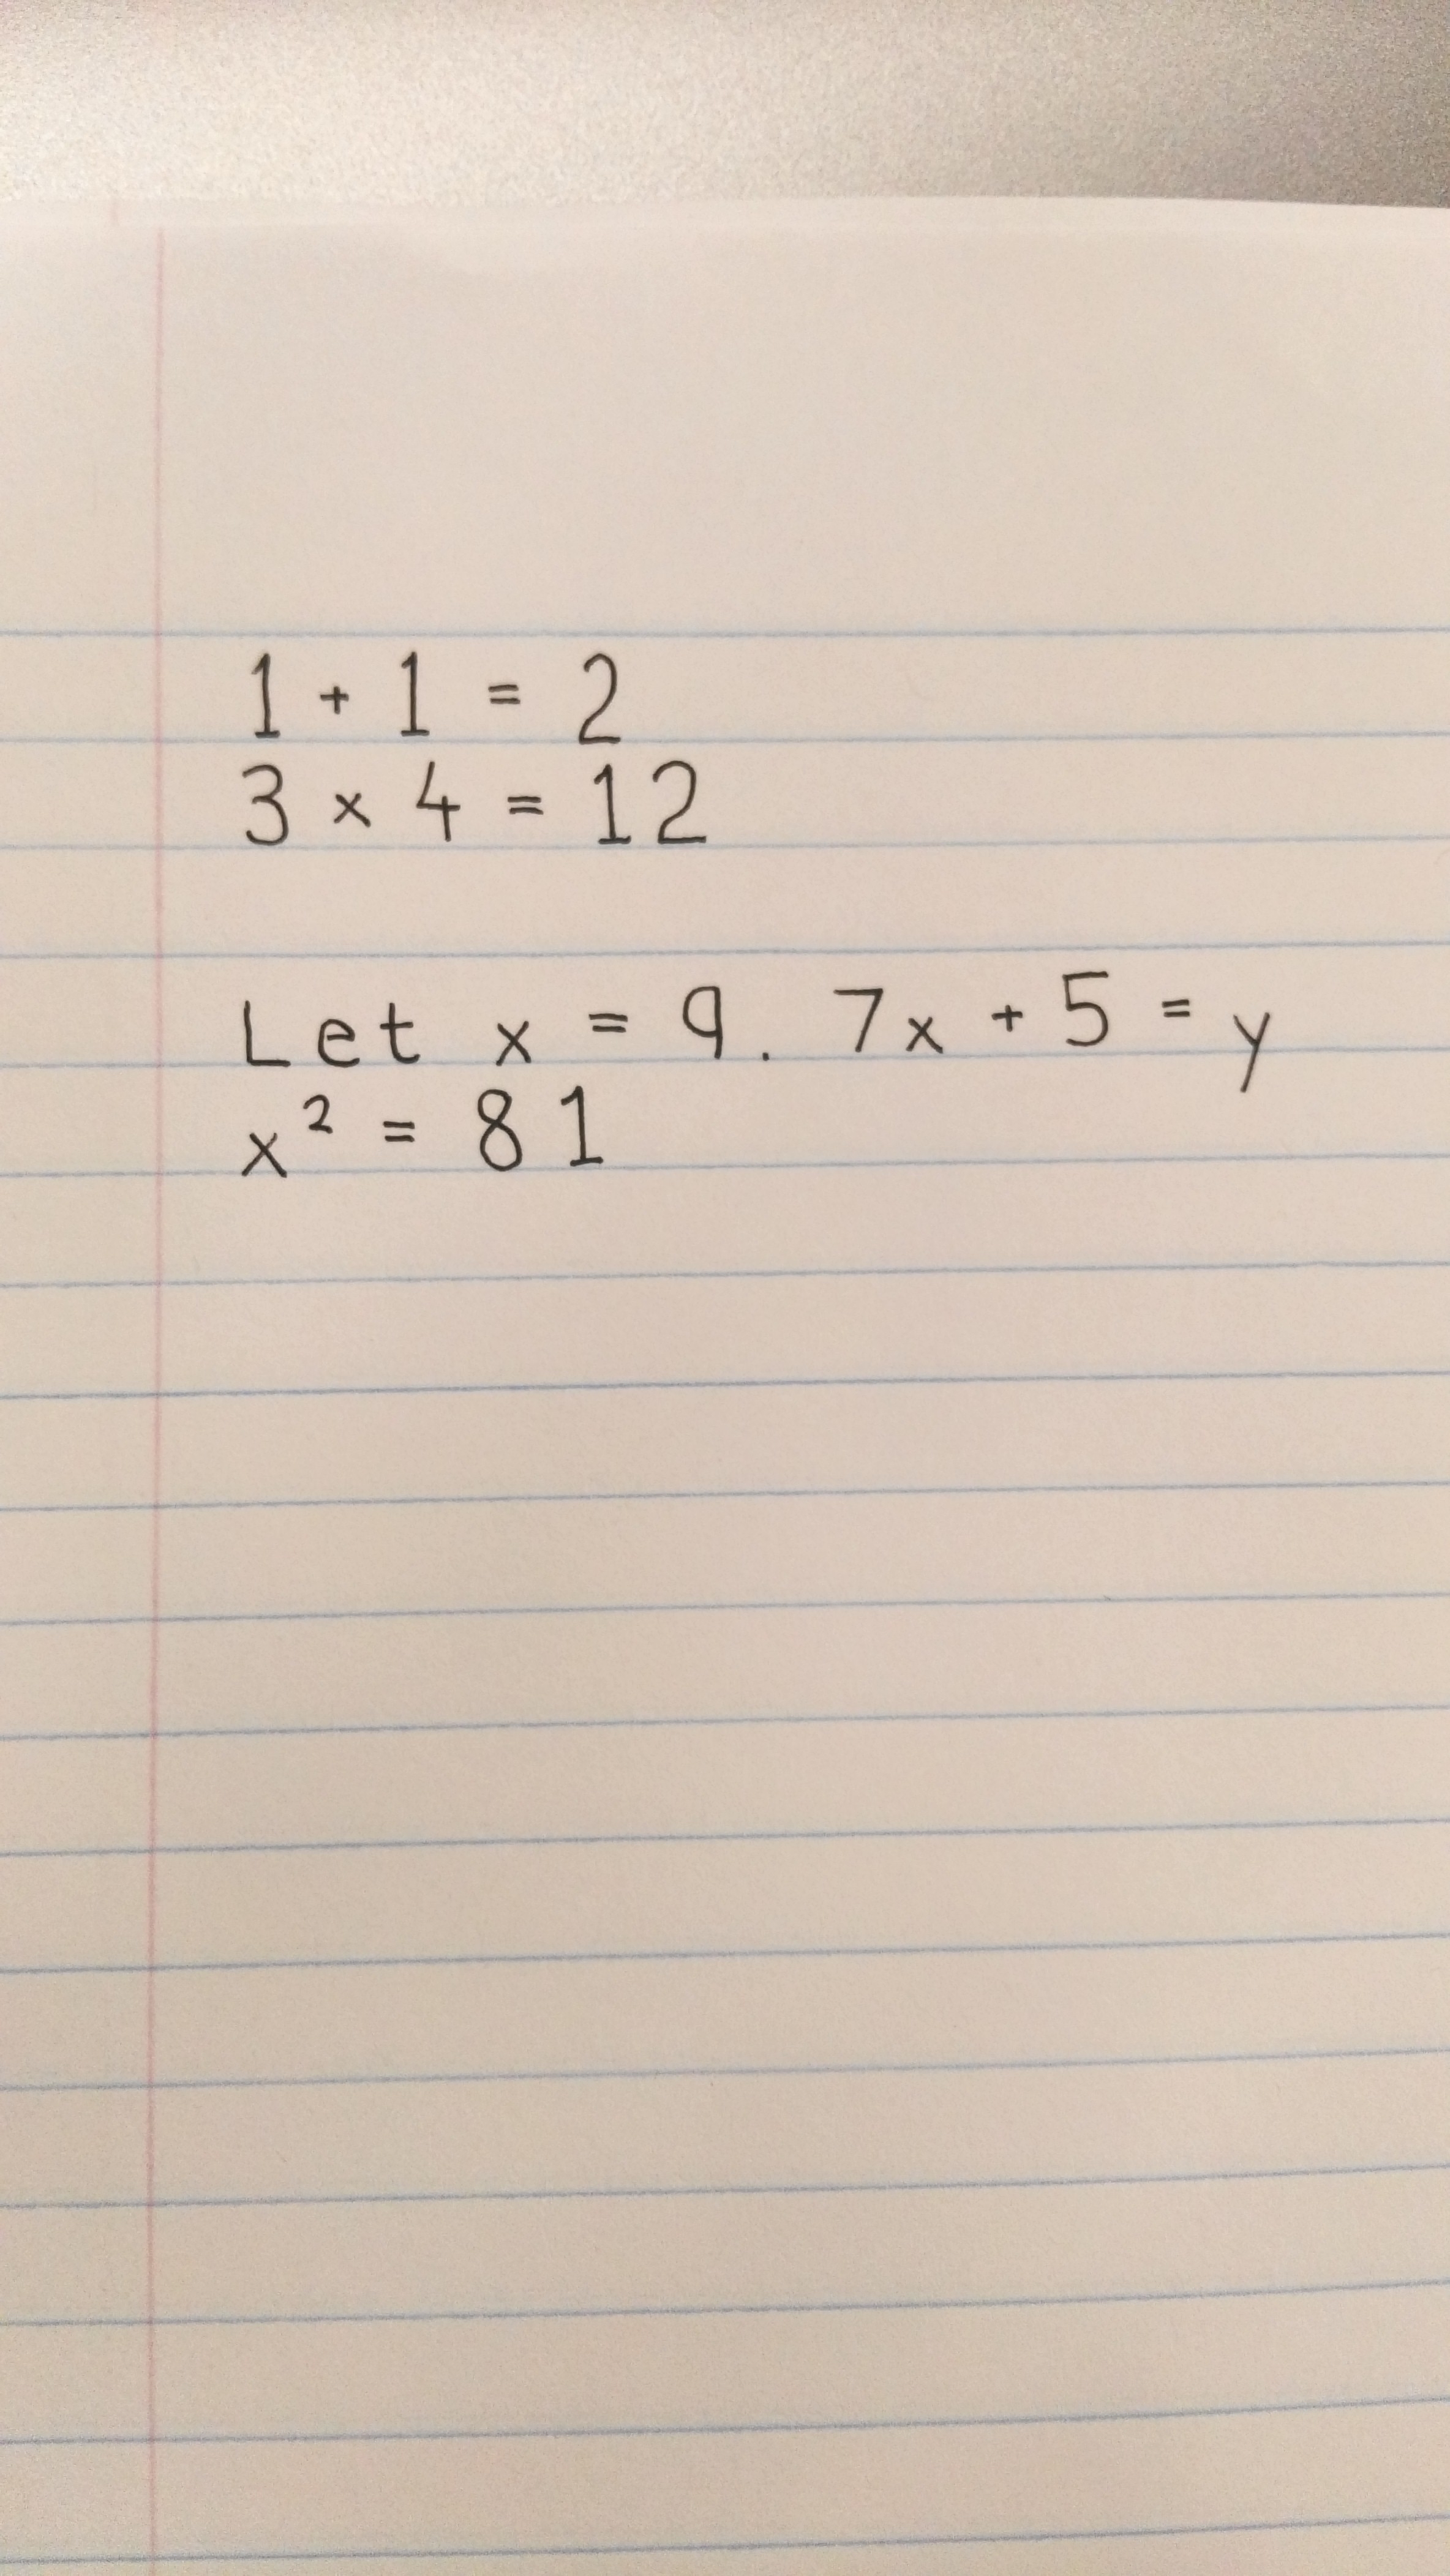 1 + 1 = 2
3 × 4 = 12
Let x = 9. 7x + 5 = y
x² = 81